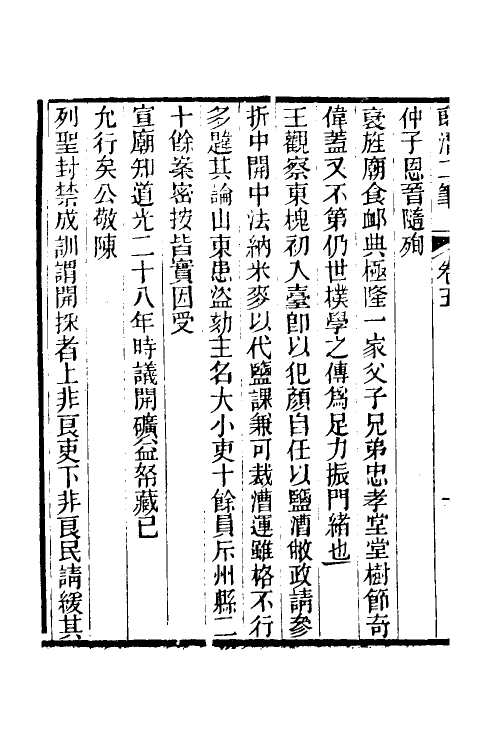 郎潛二筆 卷五 一
仲子恩晉隨殉
褒旌廟食䘏典極隆一家父子兄弟忠孝堂堂樹節奇
偉蓋又不第仍世樸學之傳爲足力振門緒也
王觀察東槐初入臺卽以犯顏自任以鹽漕敝政請參
折中開中法納米麥以代鹽課兼可裁漕運雖格不行
多韙其論山東患盜劾主名大小吏十餘員斥州縣二
十餘案密按皆實因受
宣廟知道光二十八年時議開礦益帑藏已
允行矣公敬陳
列聖封禁成訓謂開採者上非良吏下非良民請緩其